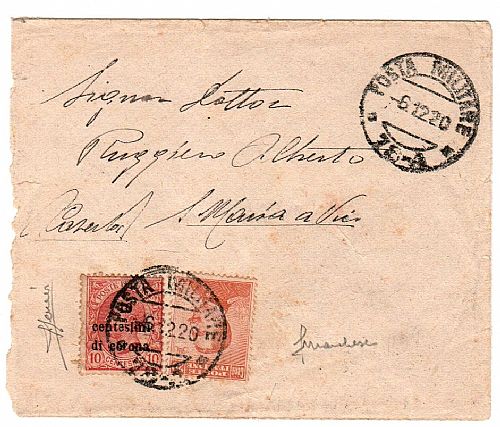 POSTA MILITARE
-6.12.20
Signor Dottor
Ruggiero Alberto
(Caserta) S. Maria a Vico
POSTA MILITARE
6.12.20
centesimi
di corona
10 10
CENTESIMI